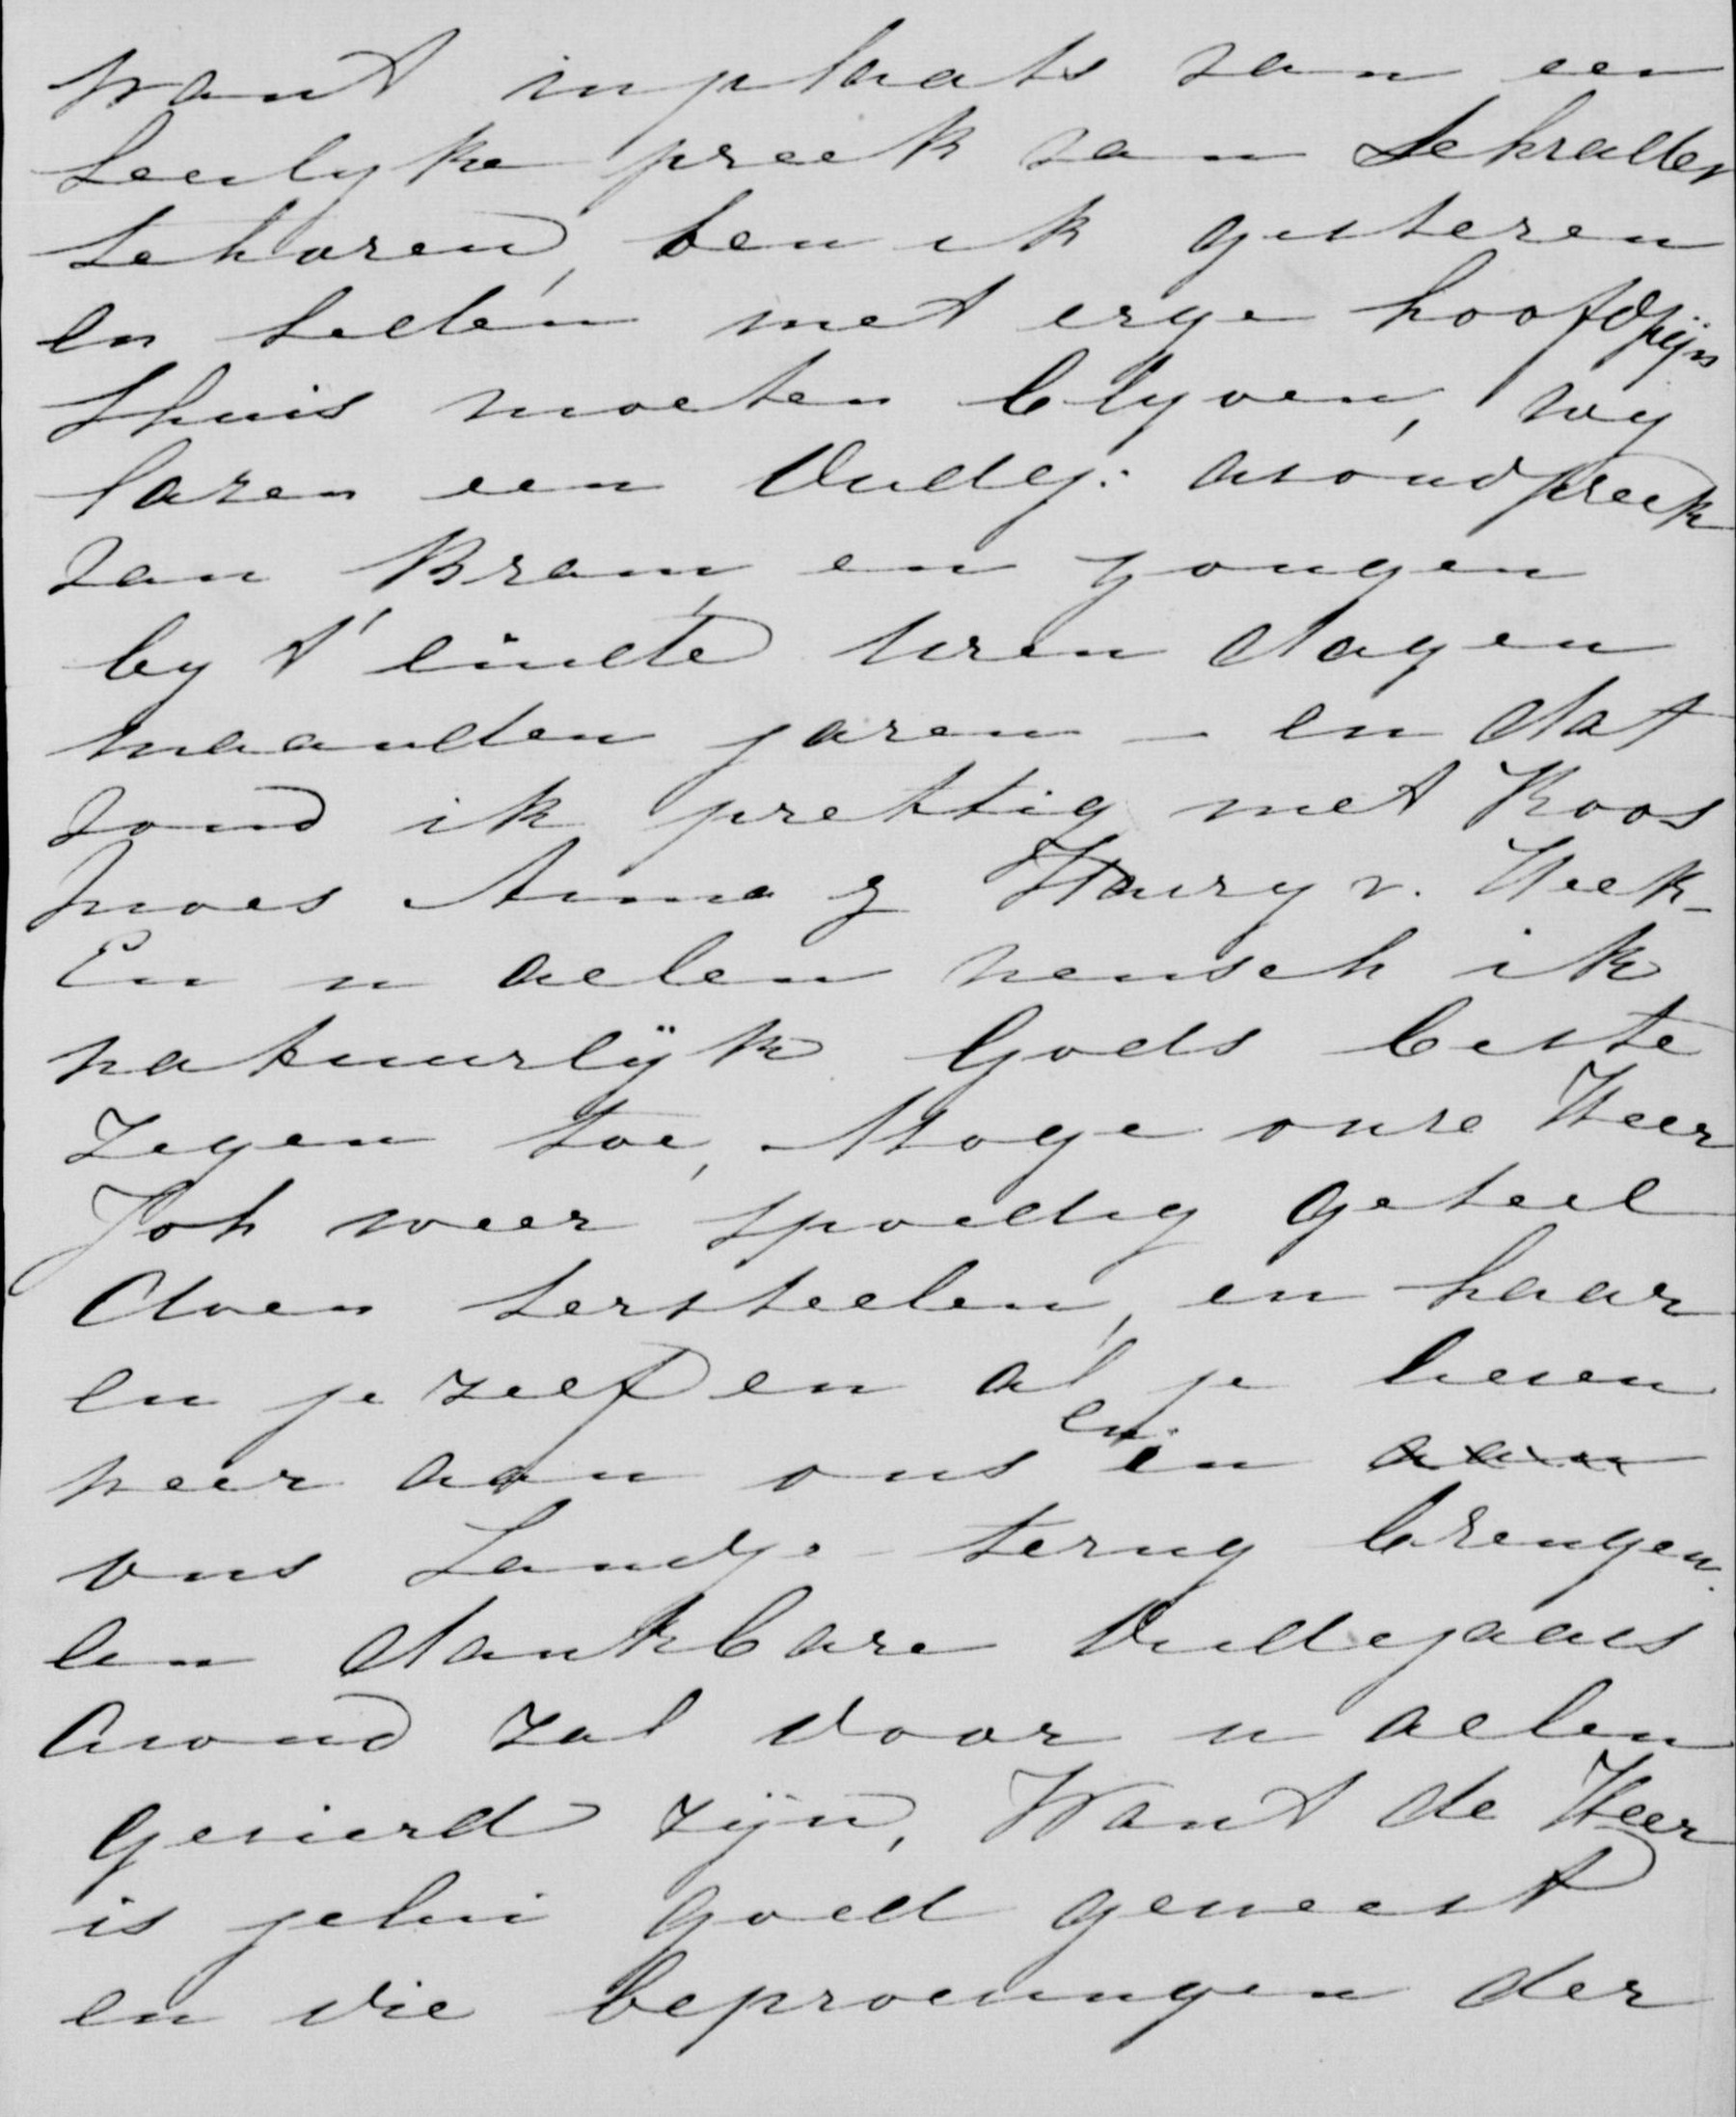 want inplaats van een
heerlyke preek van Schrader
te horen, ben ik gisteren
en heden met erge hoofdpijn
thuis moeten blyven, wy
lazen een Oudej: avondpreek
van Bram, en zongen
by 't einde Uren dagen
maanden jaren – en dat
vond ik prettig met Koos
moes Anna & Harry v. Heek –
En u allen wensch ik
natuurlijk Gods beste
zegen toe, Moge onze Heer
Joh weer spoedig geheel
doen herstellen, en haar
en je zelf en al je lieven
weer aan ons en in aan
ons Landje terug brengen.
een dankbare Oudejaars
Avond zal door u allen
gevierd zijn, Want de Heer
is jelui goed geweest
en die beproevingen der